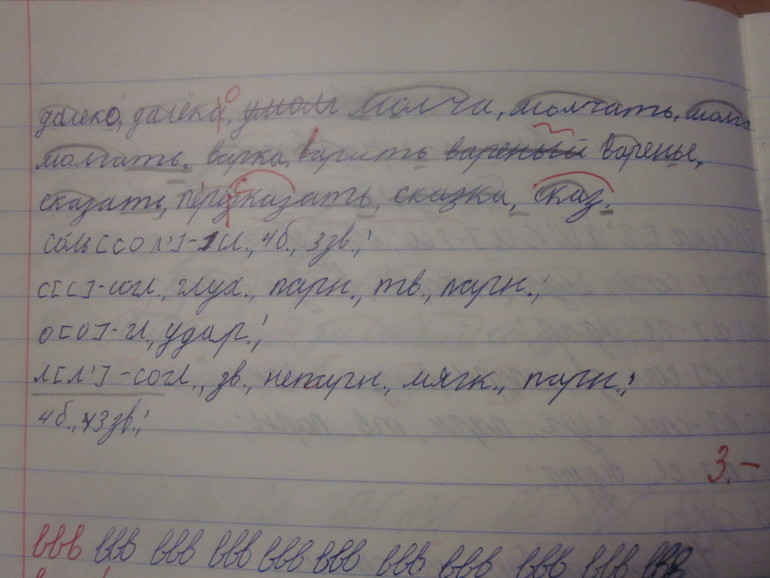 далеко, далёкий, умолк молчи, молчать, молча
молчать, варка, варить вареный варенье,
сказать, пересказать, сказка, сказ.
соль [сол'] - 1 сл., 4 б., 3 зв.;
с [с] - согл., глух., парн., тв., парн.;
о [о] - гл, удар.;
л [л'] - согл., зв., непарн., мягк., парн.;
4 б., 3 зв.;
3.-
ввв ввв ввв ввв ввв ввв ввв ввв ввв ввв ввв